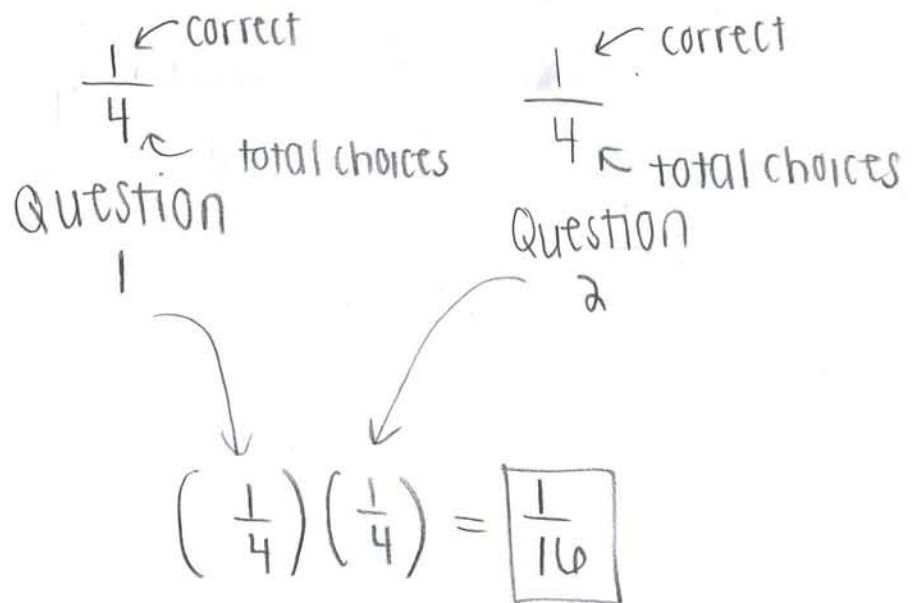 1 ← correct
—
4 ← total choices
Question
1
1 ← correct
—
4 ← total choices
Question
2
(1/4)(1/4) = 1/16